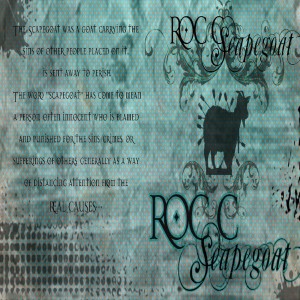 The scapegoat was a goat carrying the
sins of other people placed on it,
is sent away to perish.
The word "scapegoat" has come to mean
a person, often innocent who is blamed
and punished for the sins, crimes, or
sufferings of others generally as a way
of distracting attention from the
real causes...
ROC C
Scapegoat
ROC C
Scapegoat